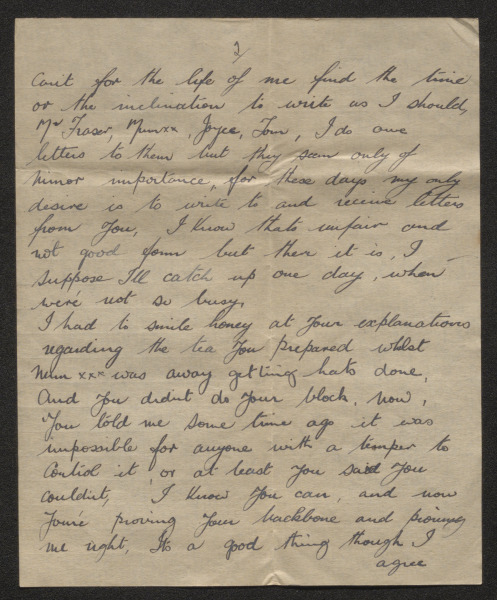 2/
can't for the life of me find the time
or the inclination to write as I should,
Mr Fraser, Mumxx, Joyce, Tom, I do owe
letters to them but they seem only of
minor importance, for these days my only
desire is to write to and receive letters
from you, I know thats unfair and
not good form but there it is, I
suppose I'll catch up one day, when
we're not so busy,
I had to smile honey at your explanations
regarding the tea you prepared whilst
Mum xxx was away getting hats done,
And you didn't do your block, now,
You told me some time ago it was
impossible for anyone with a temper to
control it, or at least you said you
couldn't, I know you can, and now
You're proving your backbone and proving
me right, Its a good thing though I
agree